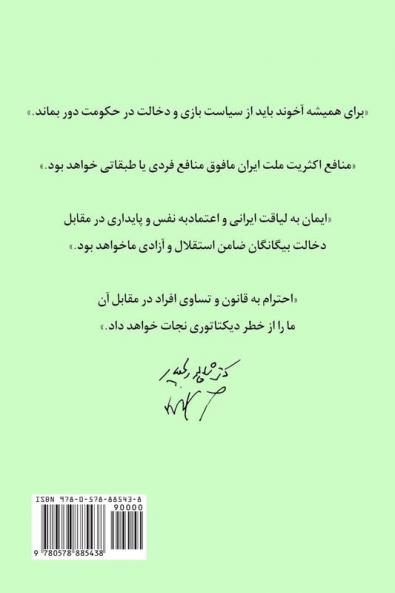 «برای همیشه آخوند باید از سیاست بازی و دخالت در حکومت دور بماند.»
«منافع اکثریت ملت ایران مافوق منافع فردی یا طبقاتی خواهد بود.»
«ایمان به لیاقت ایرانی و اعتمادبه نفس و پایداری در مقابل
دخالت بیگانگان ضامن استقلال و آزادی ماخواهد بود.»
«احترام به قانون و تساوی افراد در مقابل آن
ما را از خطر دیکتاتوری نجات خواهد داد.»
ISBN 978-0-578-88543-8
90000
9 780578 885438